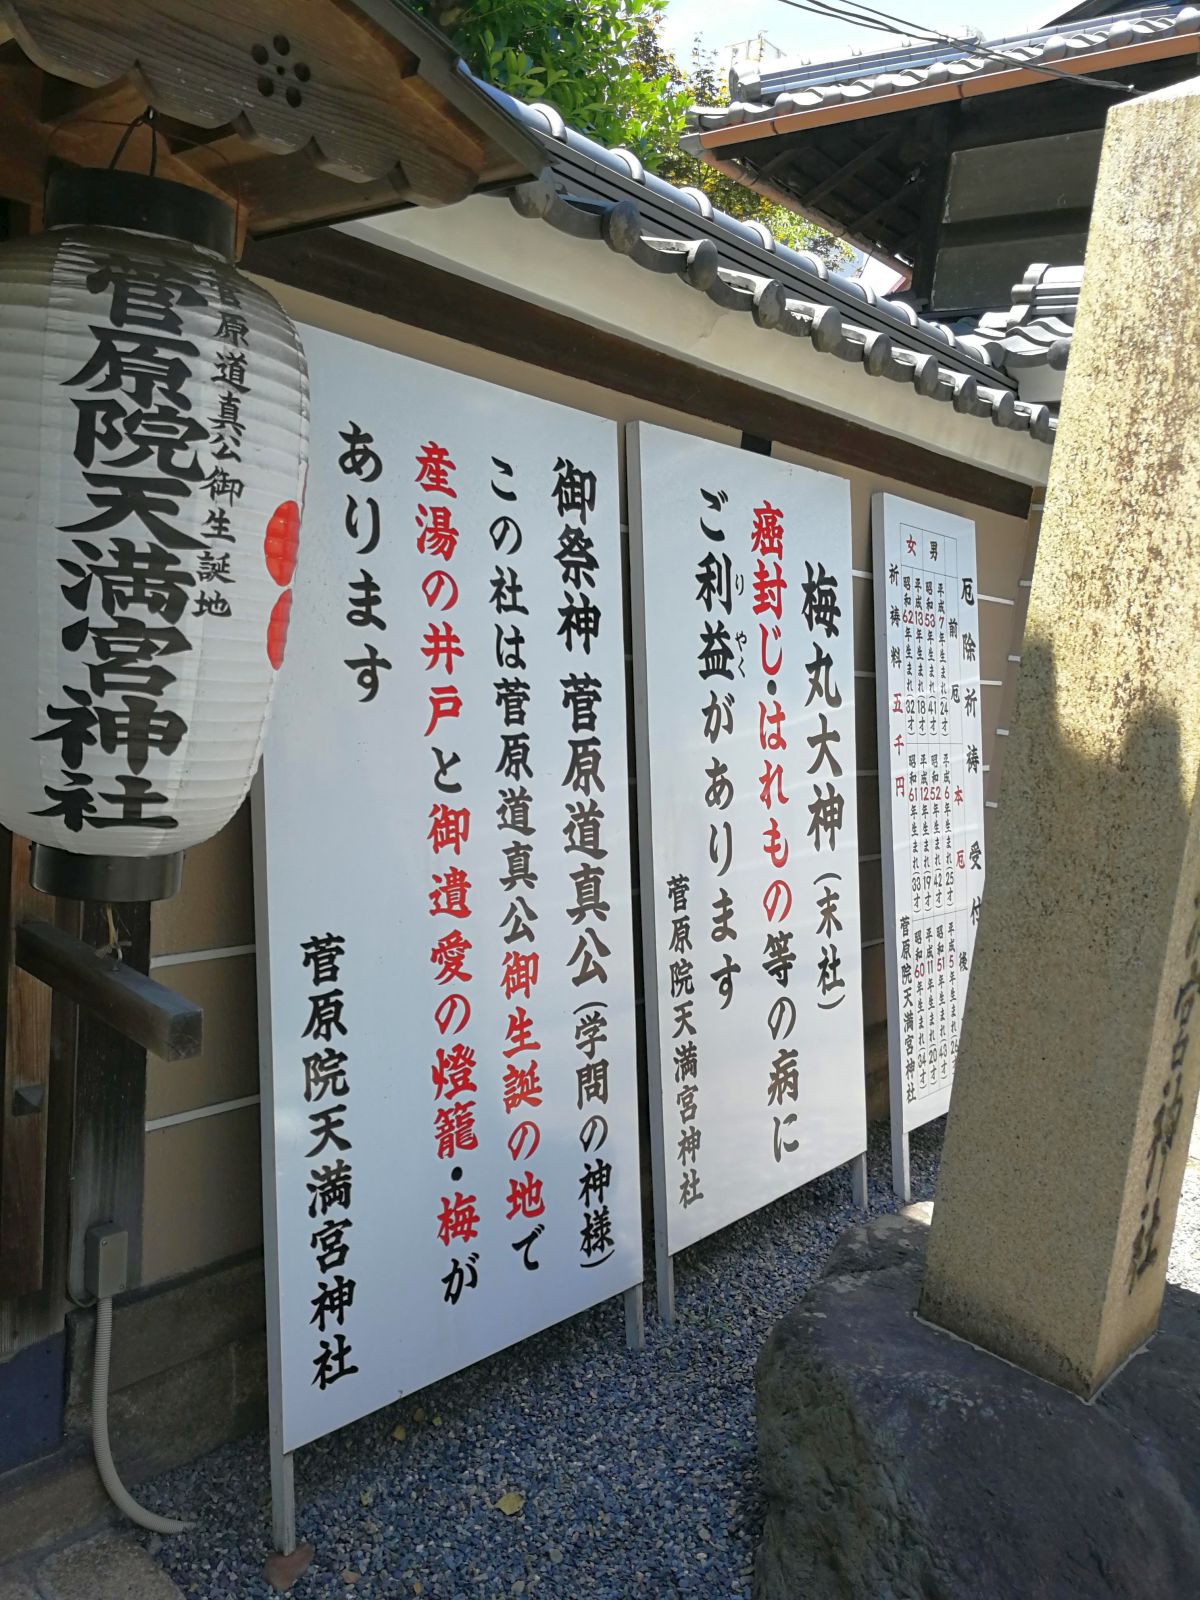 菅原道真公御生誕地
菅原院天満宮神社
御祭神 菅原道真公(学問の神様)
この社は菅原道真公御生誕の地で
産湯の井戸と御遺愛の燈籠・梅が
あります
菅原院天満宮神社
梅丸大神(末社)
癌封じ・はれもの等の病に
ご利益があります
りやく
菅原院天満宮神社
厄除祈祷受付
前厄
本厄
後
男
平成7年生まれ(24才)
平成6年生まれ(25才)
平成5年生まれ
昭和53年生まれ(41才)
昭和52年生まれ(42才)
昭和51年生まれ(43才)
女
平成13年生まれ(18才)
平成12年生まれ(19才)
平成11年生まれ(20才)
昭和62年生まれ(32才)
昭和61年生まれ(33才)
昭和60年生まれ(34才)
祈祷料 五千円
菅原院天満宮神社
宮神社